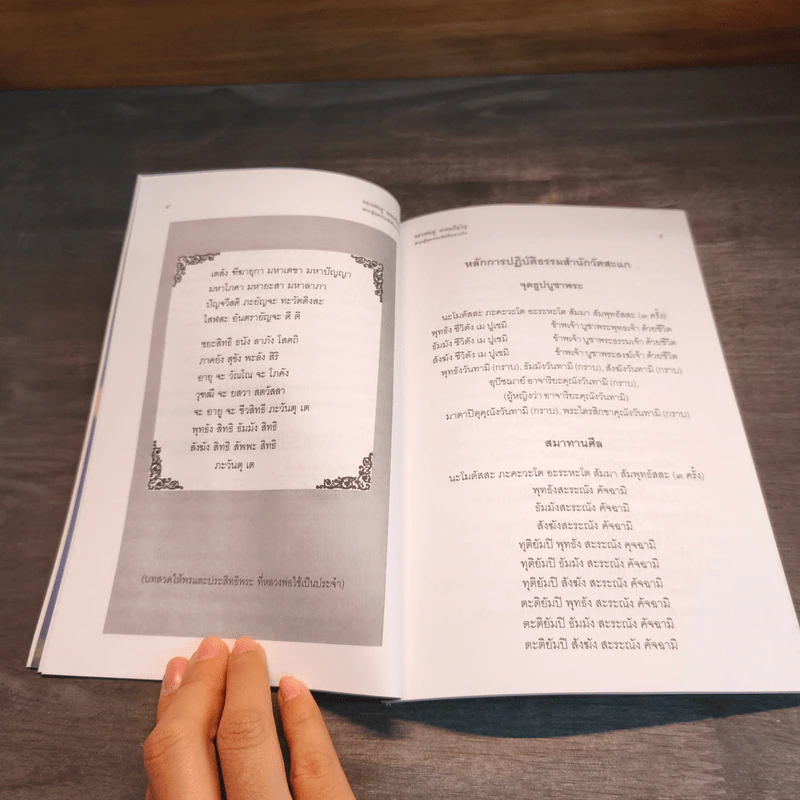 ๔
เตลัง ฑีฆายุกา มหาเตชา มหาปัญญา
มหาโภคา มหายะสา มหาลาภา
ปัญจวีสติ ภะยัญจะ ทะวัตติงสะ
โสฬสะ อันตรายัญจะ ตี ติ
ชยะสิทธิ ธนัง ลาภัง โสตถิ
ภาคยัง สุขัง พะลัง สิริ
อายุ จะ วัณโณ จะ โภคัง
วุฑฒี จะ ยสวา สตวัสสา
จะ อายุ จะ ชีวสิทธี ภะวันตุ เต
พุทธัง สิทธิ ธัมมัง สิทธิ
สังฆัง สิทธิ สัพพะ สิทธิ
ภะวันตุ เต
(บทสวดให้พรและประสิทธิพระ ที่หลวงพ่อใช้เป็นประจำ)
๕
หลักการปฏิบัติธรรมสำนักวัดสะแก
จุดธูปบูชาพระ
นะโมตัสสะ ภะคะวะโต อะระหะโต สัมมา สัมพุทธัสสะ (๓ ครั้ง)
พุทธัง ชีวิตัง เม ปูเชมิ ข้าพเจ้า บูชาพระพุทธเจ้า ด้วยชีวิต
ธัมมัง ชีวิตัง เม ปูเชมิ ข้าพเจ้า บูชาพระธรรมเจ้า ด้วยชีวิต
สังฆัง ชีวิตัง เม ปูเชมิ ข้าพเจ้า บูชาพระสงฆ์เจ้า ด้วยชีวิต
พุทธังวันทามิ (กราบ), ธัมมังวันทามิ (กราบ), สังฆังวันทามิ (กราบ)
อุปัชฌาย์ อาจาริยะคุณังวันทามิ (กราบ),
(ผู้หญิงว่า อาจาริยะคุณังวันทามิ)
มาตาปิตุคุณังวันทามิ (กราบ), พระไตรสิกขาคุณังวันทามิ (กราบ)
สมาทานศีล
นะโมตัสสะ ภะคะวะโต อะระหะโต สัมมา สัมพุทธัสสะ (๓ ครั้ง)
พุทธังสะระณัง คัจฉามิ
ธัมมังสะระณัง คัจฉามิ
สังฆังสะระณัง คัจฉามิ
ทุติยัมปี พุทธัง สะระณัง คุจฉามิ
ทุติยัมปี ธัมมัง สะระณัง คัจฉามิ
ทุติยัมปี สังฆัง สะระณัง คัจฉามิ
ตะติยัมปี พุทธัง สะระณัง คัจฉามิ
ตะติยัมปี ธัมมัง สะระณัง คัจฉามิ
ตะติยัมปี สังฆัง สะระณัง คัจฉามิ